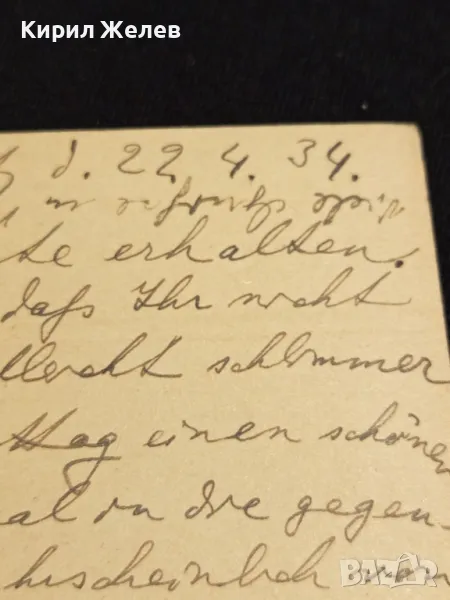 Кирил Желев
d. 22. 4. 34.
te erhalten.
daß Ihr nicht
lleicht schlimmer
ttag einen schönen
al in die gegen-
hscheinlich
bazar